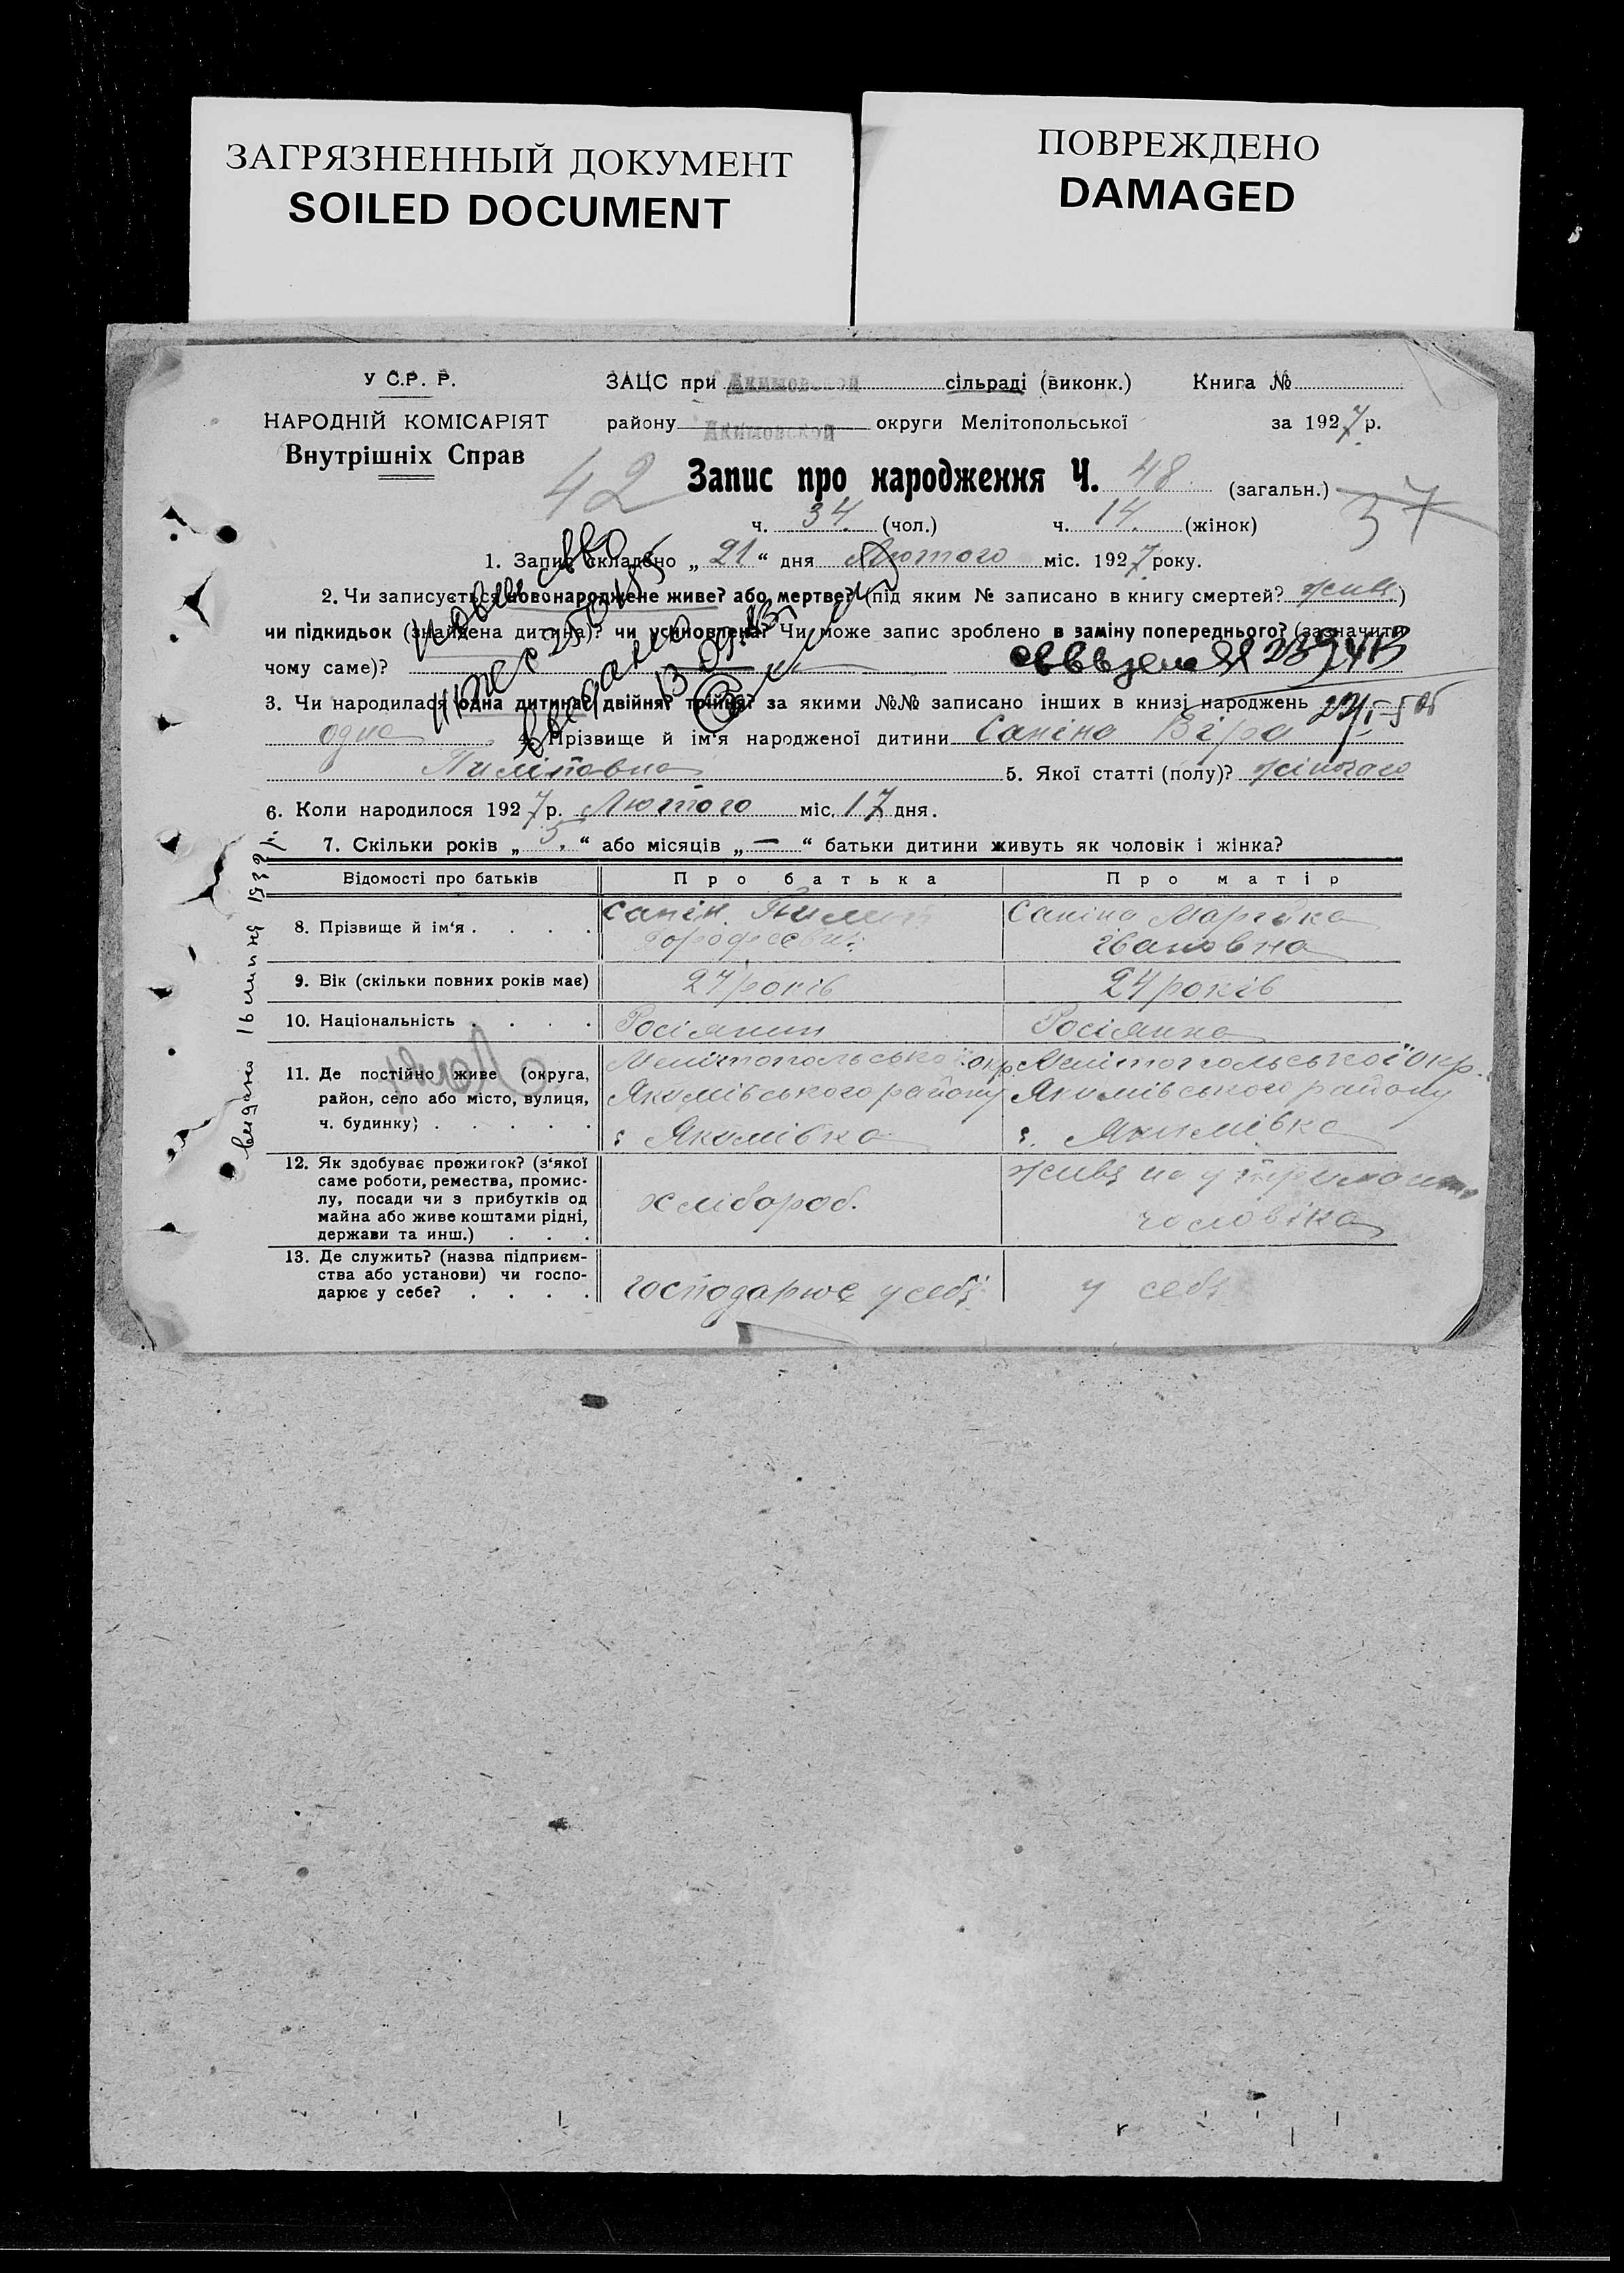 ЗАГРЯЗНЕННЫЙ ДОКУМЕНТ
SOILED DOCUMENT
ПОВРЕЖДЕНО
DAMAGED
У С.Р. Р.
НАРОДНІЙ КОМІСАРІЯТ
Внутрішніх Справ
ЗАЦС при Акимовской сільраді (виконк.) Книга №
району Акимовской округи Мелітопольської за 1927 р.
42
Запис про народження Ч. 48 (загальн.)
37
ч. 34 (чол.) ч. 14 (жінок)
1. Запис складено „ 21 “ дня Лютого міс. 1927 року.
2. Чи записується новонароджене живе? або мертве? (під яким № записано в книгу смертей? )
чи підкидьок (знайдена дитина)? чи усиновлена? Чи може запис зроблено в заміну попереднього? (зазначити
чому саме)?
3. Чи народилася одна дитина? двійня? трійня? за якими №№ записано інших в книзі народжень
одна 4. Прізвище й ім‘я народженої дитини Саніна Віра
Пиліповна 5. Якої статті (полу)? жіночого
6. Коли народилося 1927 р. Лютого міс. 17 дня.
7. Скільки років „ 5. “ або місяців „ — “ батьки дитини живуть як чоловік і жінка?
видано 16 липня
Відомості про батьків Про батька Про матір
8. Прізвище й ім‘я . . . . Санін Пилип Саніна
Івановна
9. Вік (скільки повних років має) 27 років 24 років
10. Національність . . . . Росіянин Росіянка
11. Де постійно живе (округа,
район, село або місто, вулиця,
ч. будинку) . . . . .
Мелітопольської окр.
Якимівського району
с Якимівка
Мелітопольської окр.
Якимівського району
с. Якимівка
12. Як здобуває прожиток? (з‘якої
саме роботи, ремества, промис-
лу, посади чи з прибутків од
майна або живе коштами рідні,
держави та инш.) . . .
хлібороб.
живе на утриманні
чоловіка
13. Де служить? (назва підприєм-
ства або установи) чи госпо-
дарює у себе? . . . .
господарює у себе
у себе